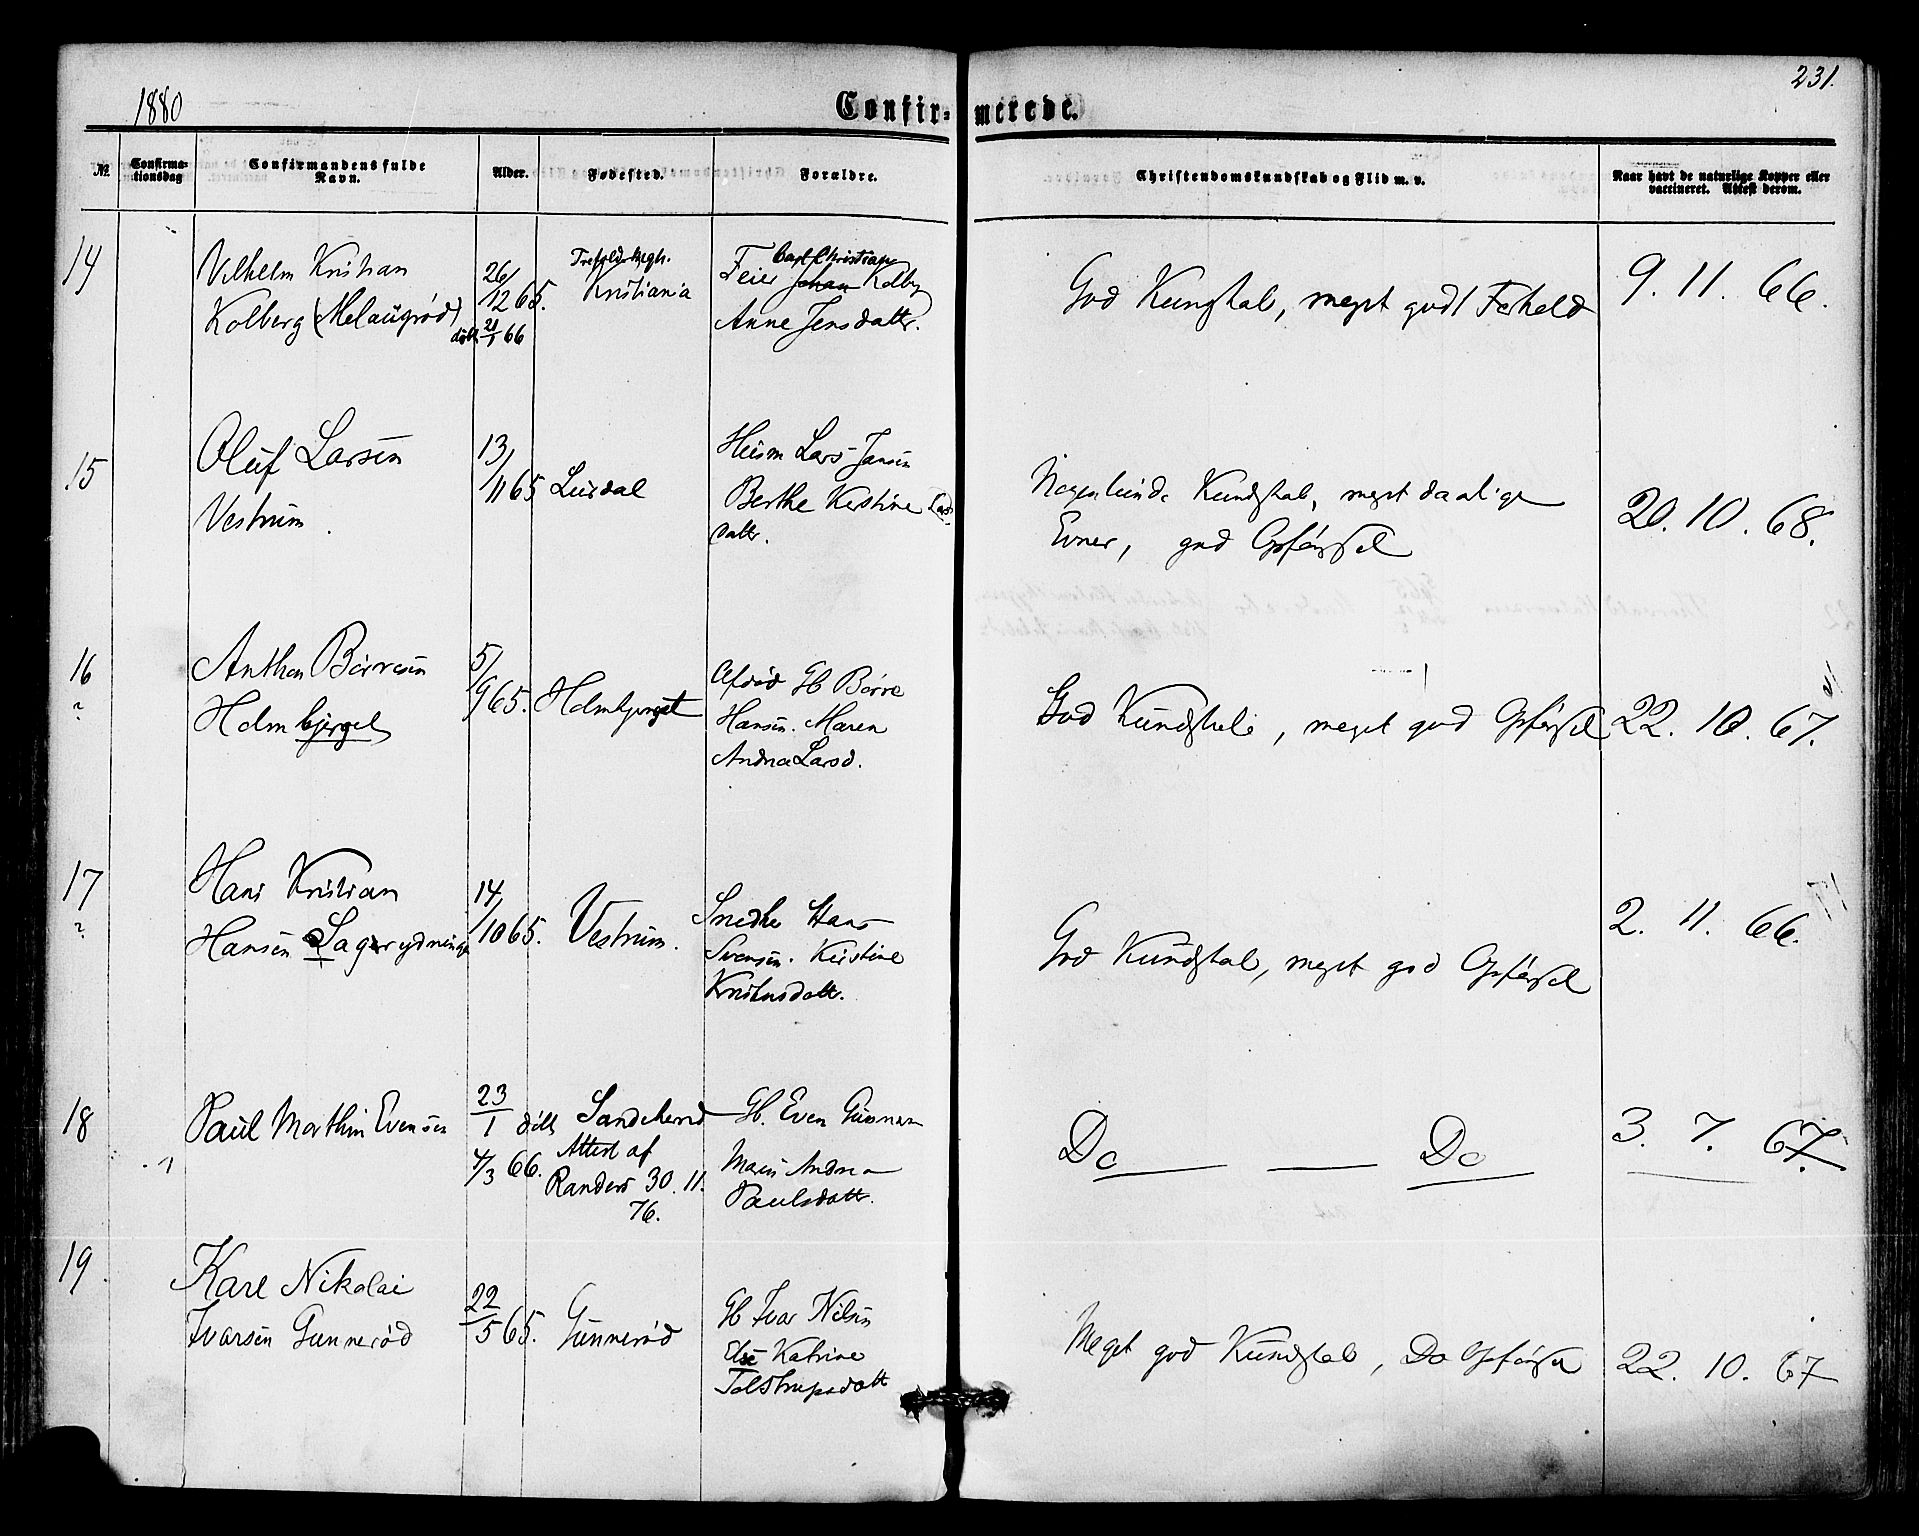 231.
1880
Confirmerede.
No.
Confirma-
tionsdag
Confirmandens fulde
Navn.
Alder.
Fødested.
Forældre.
Christendomskundskab og Flid m. v.
Naar havt de naturlige Kopper eller
vaccineret. Attest derom.
14
Vilhelm Kristian
Kolberg (Melaugrød)
26/
12 65.
døbt 21/1 66
Kristiania
Feier Carl Christian
Johan Kolbg
Anne Jensdattr.
God Kundskab, meget godt Forhold
9. 11. 66.
15
Oluf Larsen
Vestrum.
13/
11 65
Lurdal
Husm Lars Jansen
Berthe Kerstine Lars
dattr.
Nogenlunde Kundskab, meget daarlige
Evner, god Opførsel
20. 10. 68.
16
?
Anthon Børresen
Holmbjerget
5/
9 65.
Holmbjerget
Afdød Gb Børre
Hansen. Maren
Andrea Larsd.
God Kundskab, meget god Opførsel
22. 10. 67.
17
?
Hans Kristian
Hansen Sagerydninge
14/
10 65.
Vestrum.
Snedker Hans
Svensen. Kirstine
Kristensdatt.
God Kundskab, meget god Opførsel
2. 11. 66.
18
Paul Marthin Evensen
23
1 døbt
4/3 66.
Sandeherred
Attest af
Randers 30. 11.
76.
Gb. Even Gunnars
Maria Andrea
Paulsdatt.
Do Do
3. 7. 67.
19.
Karl Nikolai
Ivarsen Gunnerød
22
5 65.
Gunnerød
Gb Ivar Nilsen
Else Katrine
Tolstrupsdatt
Meget god Kundskab, Do Opførsel
22. 10. 67